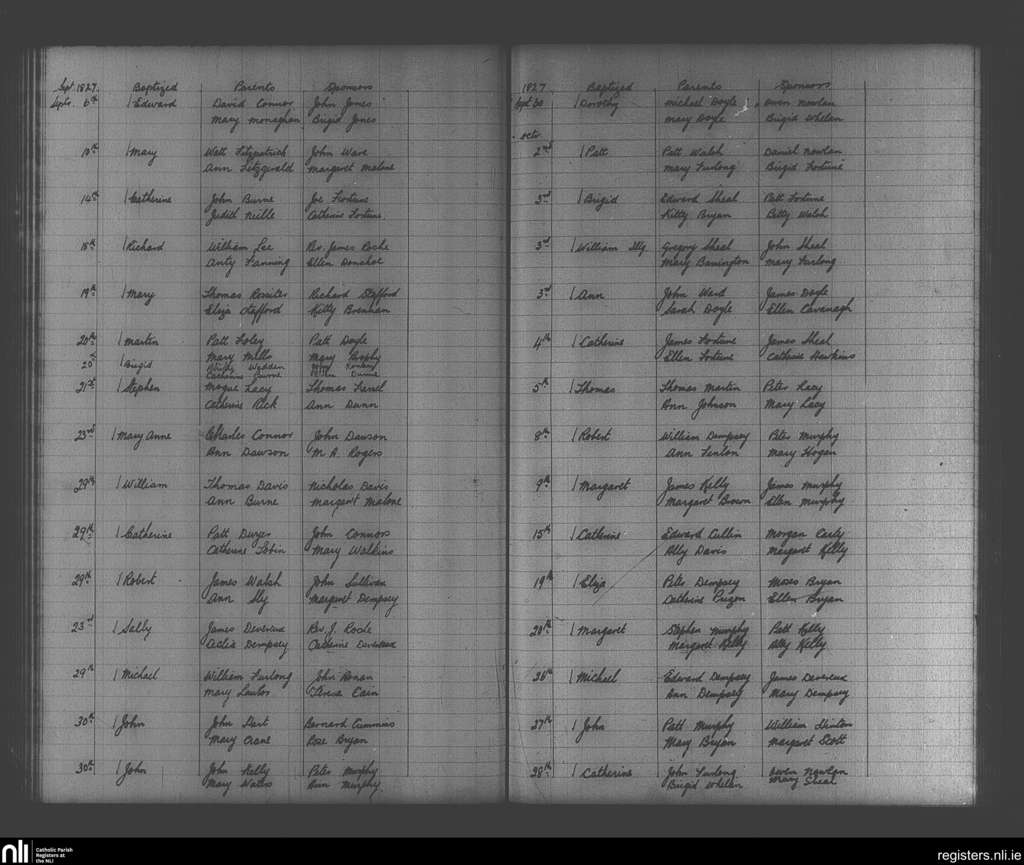 Sept. 1827. Baptized Parents Sponsors
Septr. 6th 1 Edward David Connor John Jones
Mary Monaghan Brigid Jones
10th 1 Mary Watt Fitzpatrick John Ware
Ann Fitzgerald Margaret Malone
14th 1 Catherine John Burne Joe Fortune
Judith Neille Catherine Fortune
15th 1 Richard William Lee Rev. James Roche
Anty Fanning Ellen Donohoe
19th 1 Mary Thomas Rossiter Richard Stafford
Eliza Stafford Kitty Brenhan
20th 1 Martin Patt Foley Patt Doyle
Mary Mills Mary
20th 1 Brigid
Catherine
21st 1 Stephen Mogue Lacy Thomas Farrel
Catherine Rick Ann Dunn
23rd 1 Mary Anne Charles Connor John Dawson
Ann Dawson M. A. Rogers
29th 1 William Thomas Davis Nicholas Davis
Ann Burne Margaret Malone
29th 1 Catherine Patt Dwyer John Connors
Catherine Tobin Mary Watkins
29th 1 Robert James Walsh John Sullivan
Ann Sly Margaret Dempsey
23rd 1 Sally James Devereux Rev. J. Roche
Dempsey Catherine Devereux
29th 1 Michael William Furlong John Ronan
Mary Lawlor Cain
30th 1 John John Hart Barnard Cummins
Mary Crane Rose Bryan
30th 1 John John Kelly Peter Murphy
Mary Walsh Ann Murphy
1827 Baptized Parents Sponsors
Sept 30 1 Dorothy Michael Doyle Owen Nowlan
Mary Doyle Brigid Whelan
Octr
2nd 1 Patt Patt Walsh Daniel Nowlan
Mary Furlong Brigid Fortune
3rd 1 Brigid Edward Sheal Patt Fortune
Kitty Bryan Betty Walsh
3rd 1 William Illg. Gregory Sheal John Sheal
Mary Bannington Mary Furlong
3rd 1 Ann John Ward James Doyle
Sarah Doyle Ellen Cavanagh
4th 1 Catherine James Fortune James Sheal
Ellen Fortune Catherine Hawkins
5th 1 Thomas Thomas Martin Peter Kacy
Ann Johnson Mary Lacy
8th 1 Robert William Dempsey Peter Murphy
Ann Fenlon Mary Hogan
9th 1 Margaret James Kelly James Murphy
Margaret Brown Ellen Murphy
15th 1 Catherine Edward Cullin Morgan Carty
Ally Davis Margaret Kelly
19th 1 Eliza Peter Dempsey Moses Bryan
Catherine Ellen Bryan
20th 1 Margaret Stephen Murphy Patt Kelly
Margaret Kelly Ally Kelly
26th 1 Michael Edward Dempsey James Devereux
Ann Dempsey Mary Dempsey
27th 1 John Patt Murphy William Hinton
Mary Bryan Margaret Scott
28th 1 Catherine John Furlong Owen Nowlan
Brigid Whelan Mary Sheal
nli Catholic Parish
Registers at
the NLI
registers.nli.ie